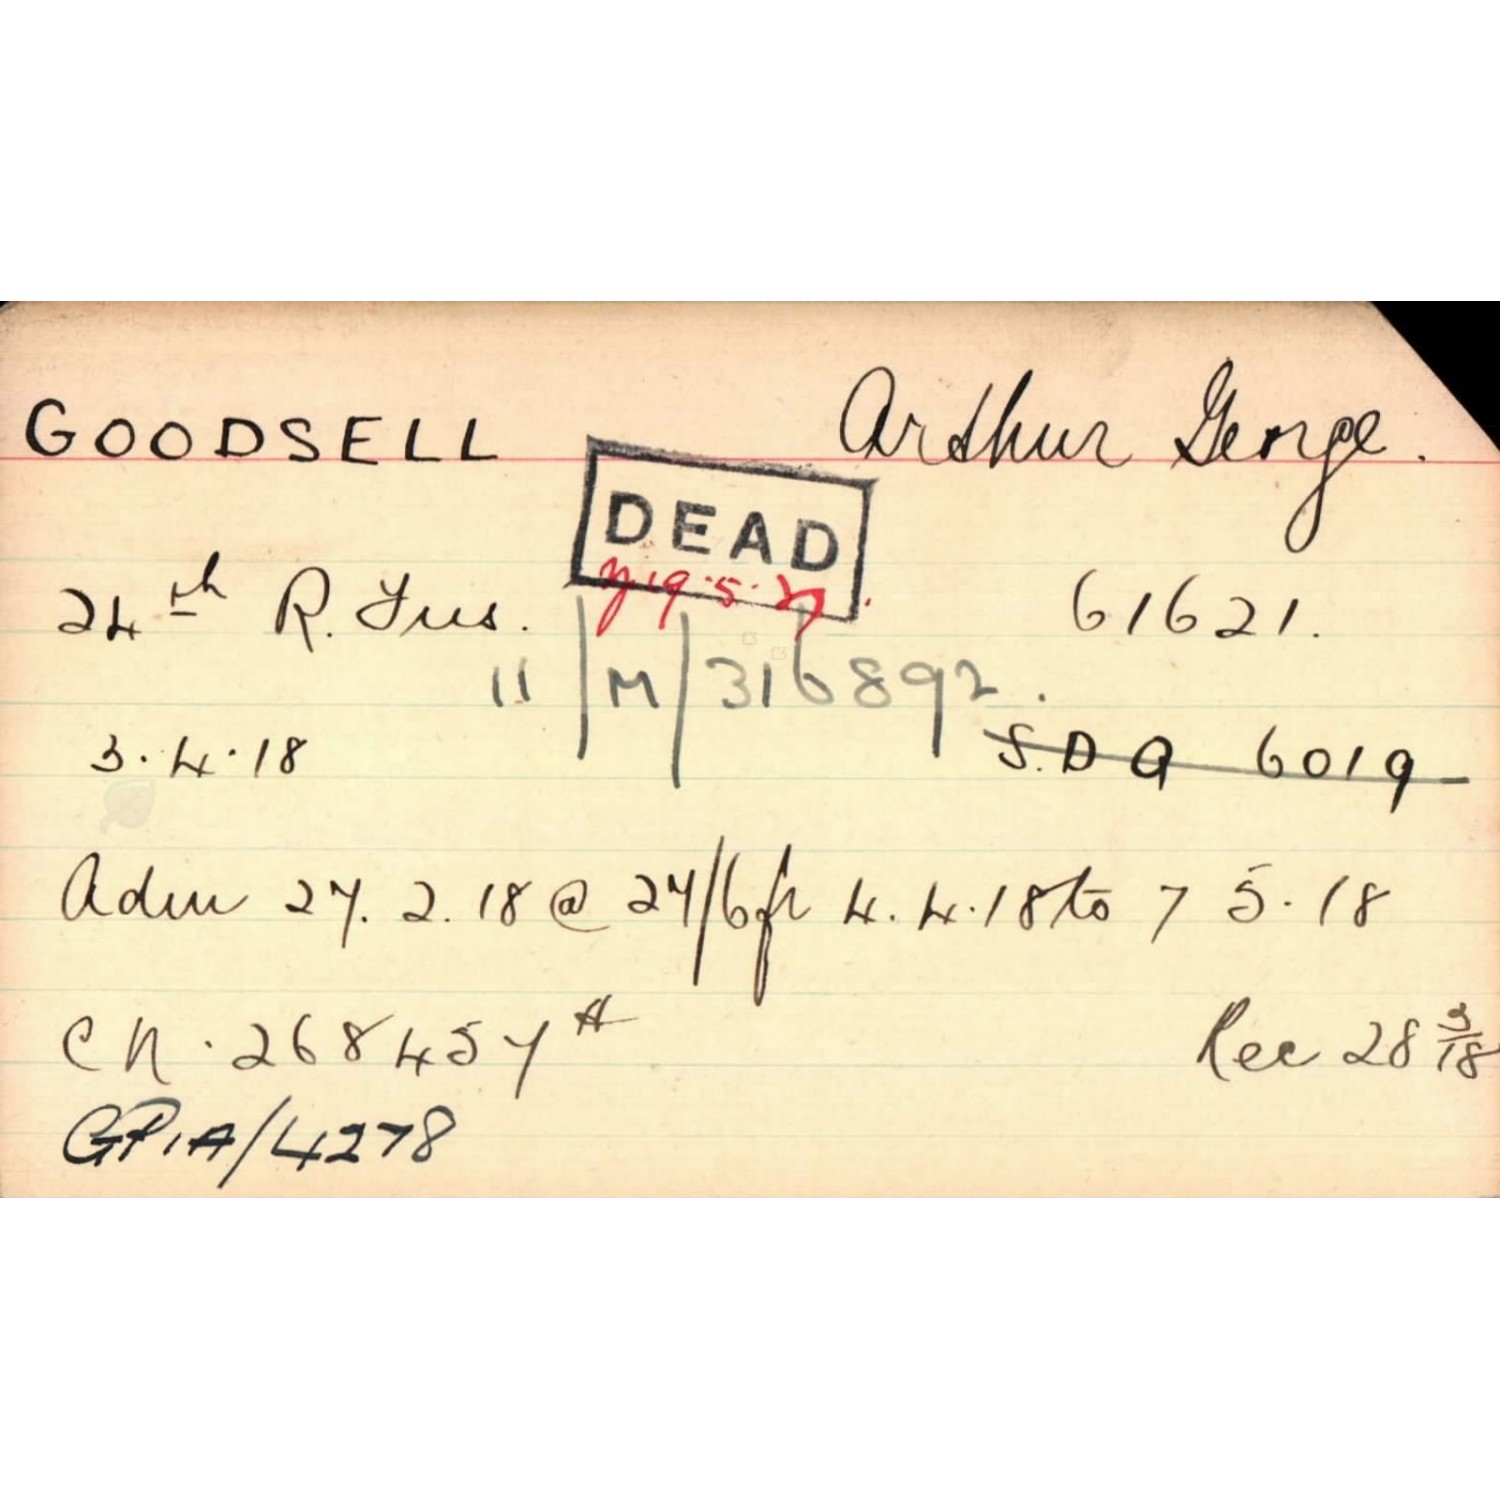 GOODSELL Arthur George.
DEAD
19.5.27.
24th R. Fus. 61621.
11/M/316892.
3.4.18 S.D.A 6019
Adm 27.2.18 @ 27/6 fr 4.4.18 to 7 5.18
CN.268457A Rec 28 3/18
GP1A/4278